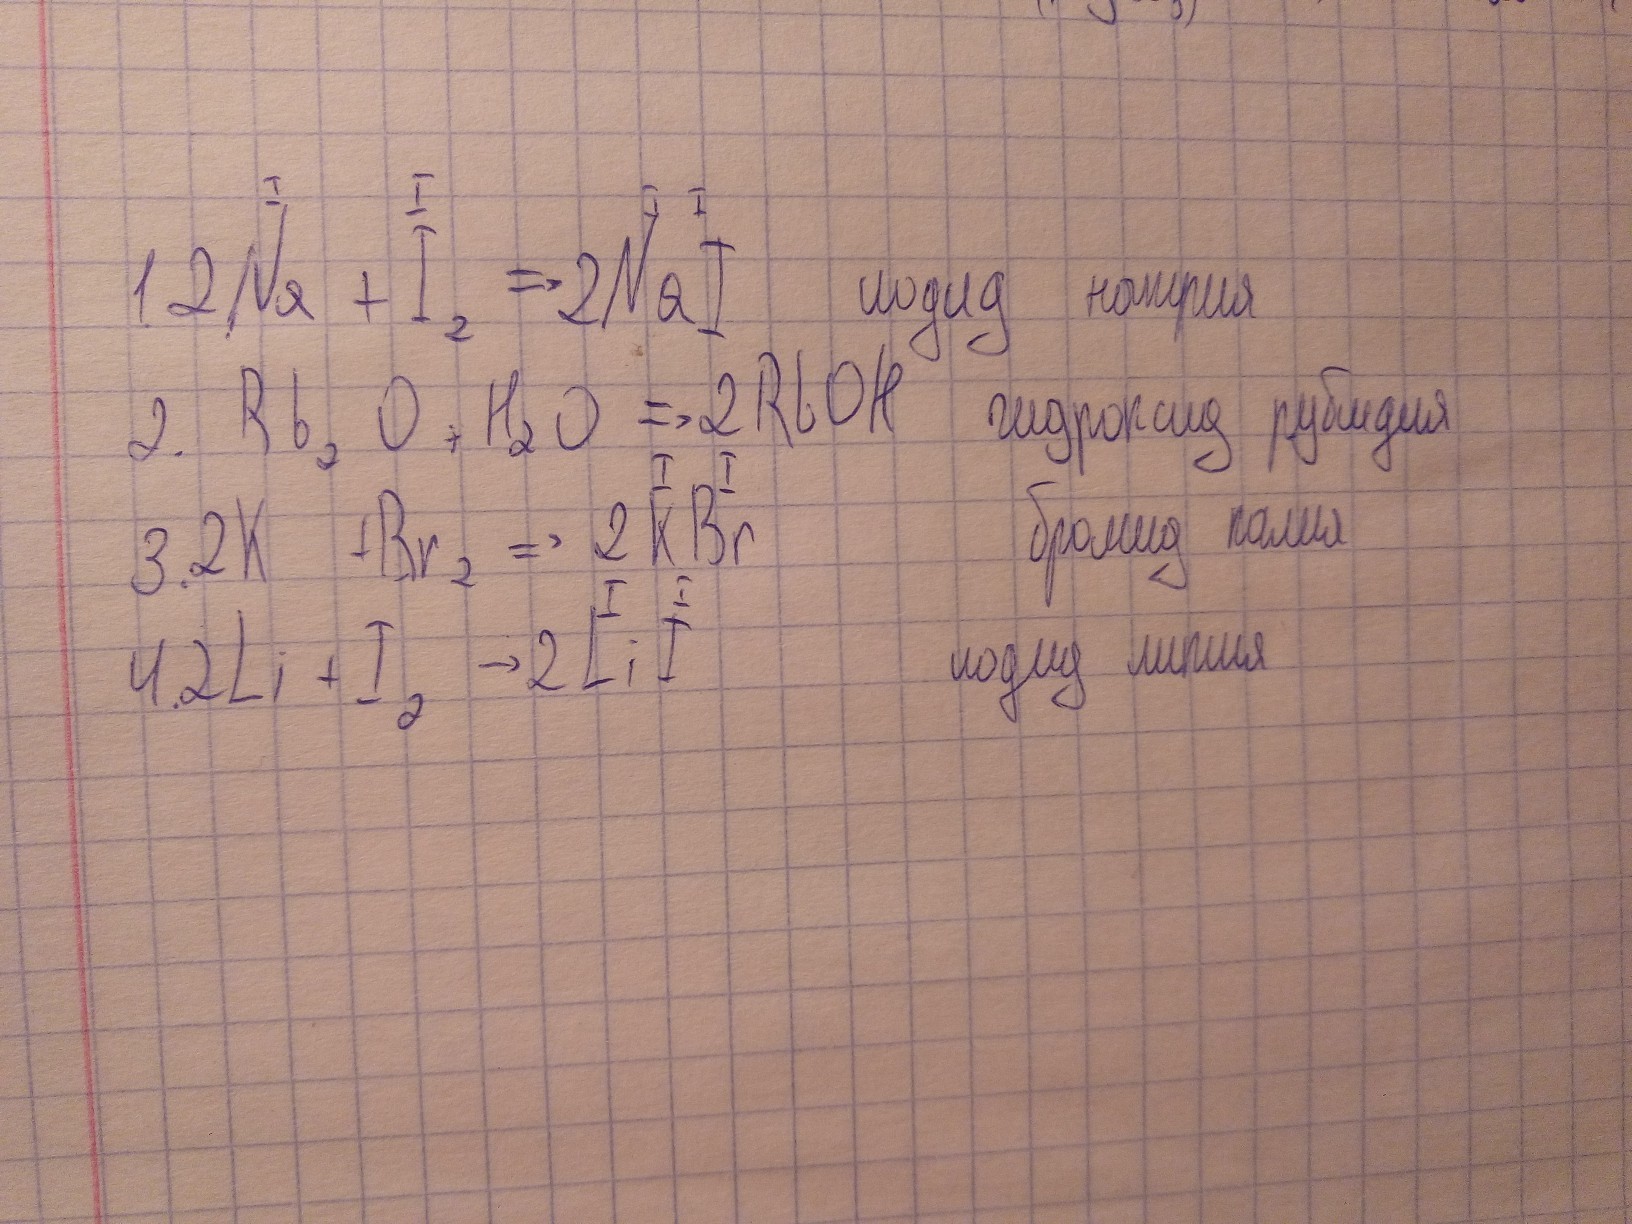 1. 2Na + I₂ => 2NaI иодид натрия
2. Rb₂O + H₂O => 2RbOH гидроксид рубидия
3. 2K + Br₂ => 2KBr бромид калия
4. 2Li + I₂ → 2LiI иодид лития